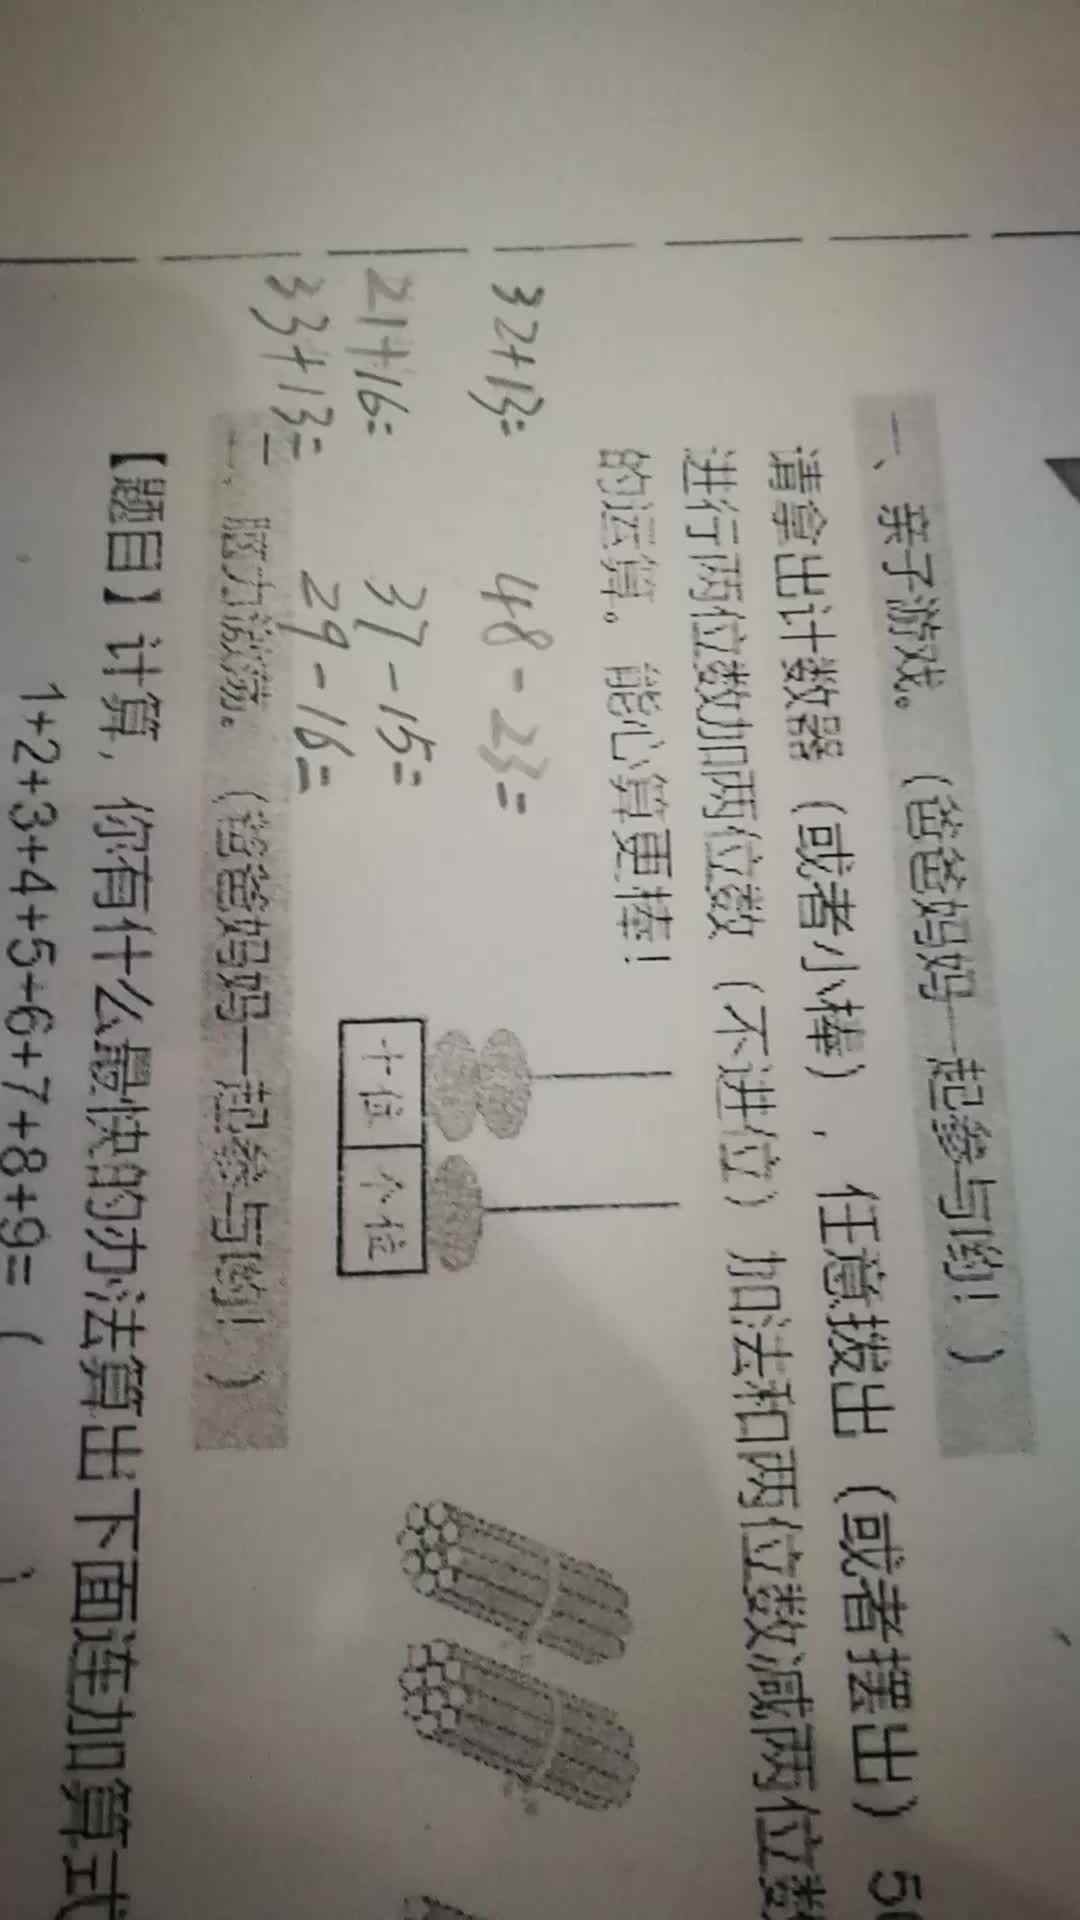 一、亲子游戏。（爸爸妈妈一起参与哟！）
请拿出计数器（或者小棒），任意拨出（或者摆出）5
进行两位数加两位数（不进位）加法和两位数减两位数
的运算。能心算更棒！
32+13= 48-23=
21+16= 37-15=
33+13= 29-16=
十位 个位
二、脑力激荡。（爸爸妈妈一起参与哟！）
【题目】计算，你有什么最快的办法算出下面连加算式
1+2+3+4+5+6+7+8+9=（ ）